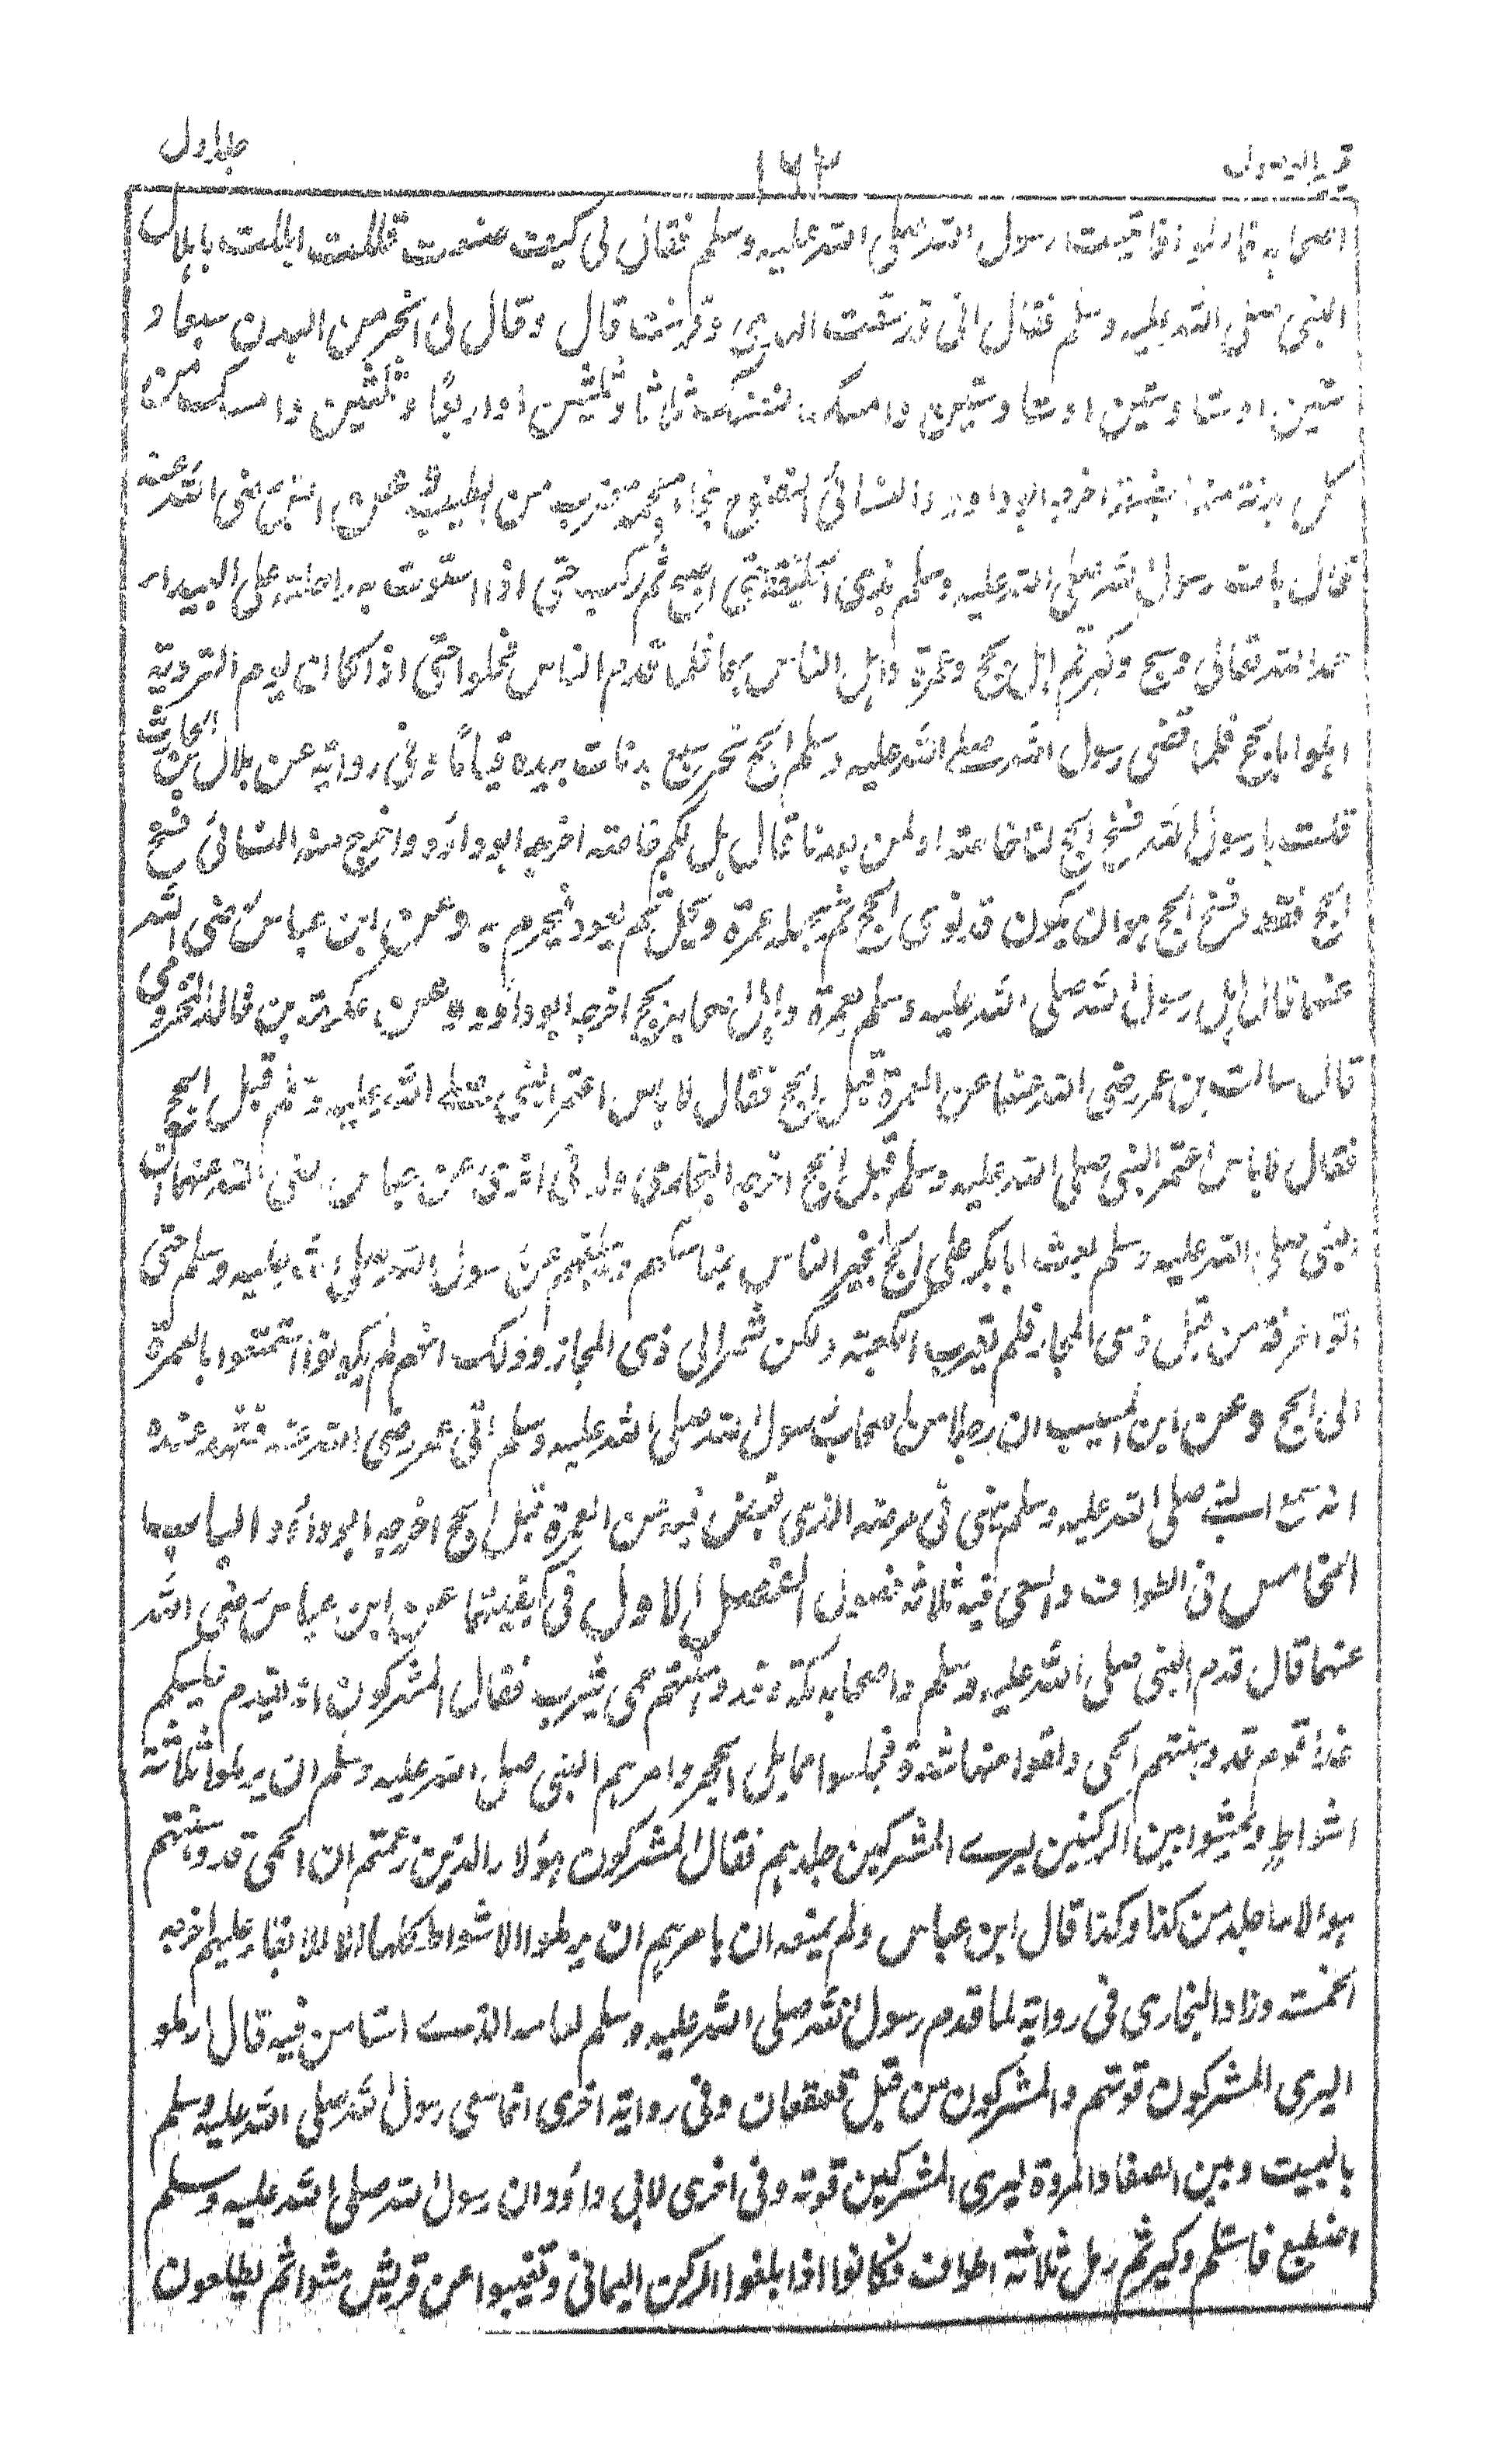 جلد اول ١٦٣
اصحابه رسول الله صلى الله عليه وسلم فقال لى كيف صنعت فقلت اهللت باهلال
النبى صلى الله عليه وسلم فقال انى قد سقت الهدى وقرنت قال وقال لى انحر من البدن سبعا و
ستين او ستا وستين وامسك لنفسك ثلاثا وثلثين او اربعا وثلثين وامسك من
كل بدنة منها بضعة اخرجه ابو داود والنسائى النضوح بخاء معجمة ضرب من الطيب وعن انس رضى الله عنه
قال بات رسول الله صلى الله عليه وسلم بذى الحليفة حتى اصبح ثم ركب حتى اذا استوت به راحلته على البيداء
حمد الله تعالى وسبح وكبر ثم اهل بحج وعمرة واهل الناس بهما فلما قدم الناس فحلوا حتى اذا كان يوم التروية
اهلوا بالحج فلما قضى رسول الله صلے الله عليه وسلم الحج نحر سبع بدنات بيده قياما وفى رواية عن بلال بن الحارث
قلت يا رسول الله فسخ الحج لنا خاصة او لمن بعدنا قال بل لكم خاصة اخرجه ابو داؤد واخرج منه النسائى فسخ
الحج فقط فسخ الحج هو ان يكون قد نوى الحج ثم يجعله عمرة ويحل ثم يعود فيحرم به وعن ابن عباس رضى الله
عنهما قال اهل رسول الله صلى الله عليه وسلم بعمرة واهل اصحابه بحج اخرجه ابو داود وعن عكرمة بن خالد المخزومى
قال سالت بن عمر رضى الله عنهما عن العمرة قبل الحج فقال لا باس اعتمر النبى صلے الله عليه وسلم قبل الحج
فقال لا باس اعتمر النبى صلى الله عليه وسلم قبل الحج اخرجه البخارى وله فى اخرى عن عباس رضى الله عنهما ان
النبى صلى الله عليه وسلم بعث ابا بكر على الحج يخبر الناس بمناسكهم ويبلغهم عن رسول الله صلى الله عليه وسلم حتى
اتوا عرفة من قبل ذى المجاز فلم يقرب الكعبة ولكن شمر الى ذى المجاز وذلك انهم لم يكونوا استمتعوا بالعمرة
الى الحج وعن ابن المسيب ان رجلا من اصحاب رسول الله صلى الله عليه وسلم اتى عمر رضى الله عنه فشهد عنده
انه سمع النبے صلى الله عليه وسلم ينهى فى مرضه الذى قبض فيه عن العمرة قبل الحج اخرجه ابو داؤد الباب
الخامس فى الطواف والسعى فيه ثلاثة فصول الفصل الاول فى كيفيتهما عن ابن عباس رضى الله
عنهما قال قدم النبى صلى الله عليه وسلم واصحابه مكة وقد وهنتهم حمى يثرب فقال المشركون انه يقدم عليكم
غدا قوم قد وهنتهم الحمى ولقوا منها شدة فجلسوا مما يلى الحجر وامرهم النبى صلى الله عليه وسلم ان يرملوا ثلاثة
اشواط ويمشوا بين الركنين ليرے المشركين جلدهم فقال المشركون هؤلاء الذين زعمتم ان الحمى قد وهنتهم
هؤلاء اجلد من كذا وكذا قال ابن عباس ولم يمنعه ان يامرهم ان يرملوا الاشواط كلها الا للابقاء عليهم اخرجه
الخمسة وزاد البخارى فى رواية لما قدم رسول الله صلى الله عليه وسلم لعامه الذے استامن فيه قال ارملوا
ليرى المشركون قوتهم والمشركون من قبل قعيقعان وفى رواية اخرى انما سعى رسول الله صلى الله عليه وسلم
بالبيت وبين الصفا والمروة ليرى المشركين قوته وفى اخرى لابى داؤد ان رسول الله صلى الله عليه وسلم
اضطبع فاستلم وكبر ثم رمل ثلاثة اطواف فكانوا اذا بلغوا الركن اليمانى وتغيبوا عن قريش مشوا ثم يطلعون